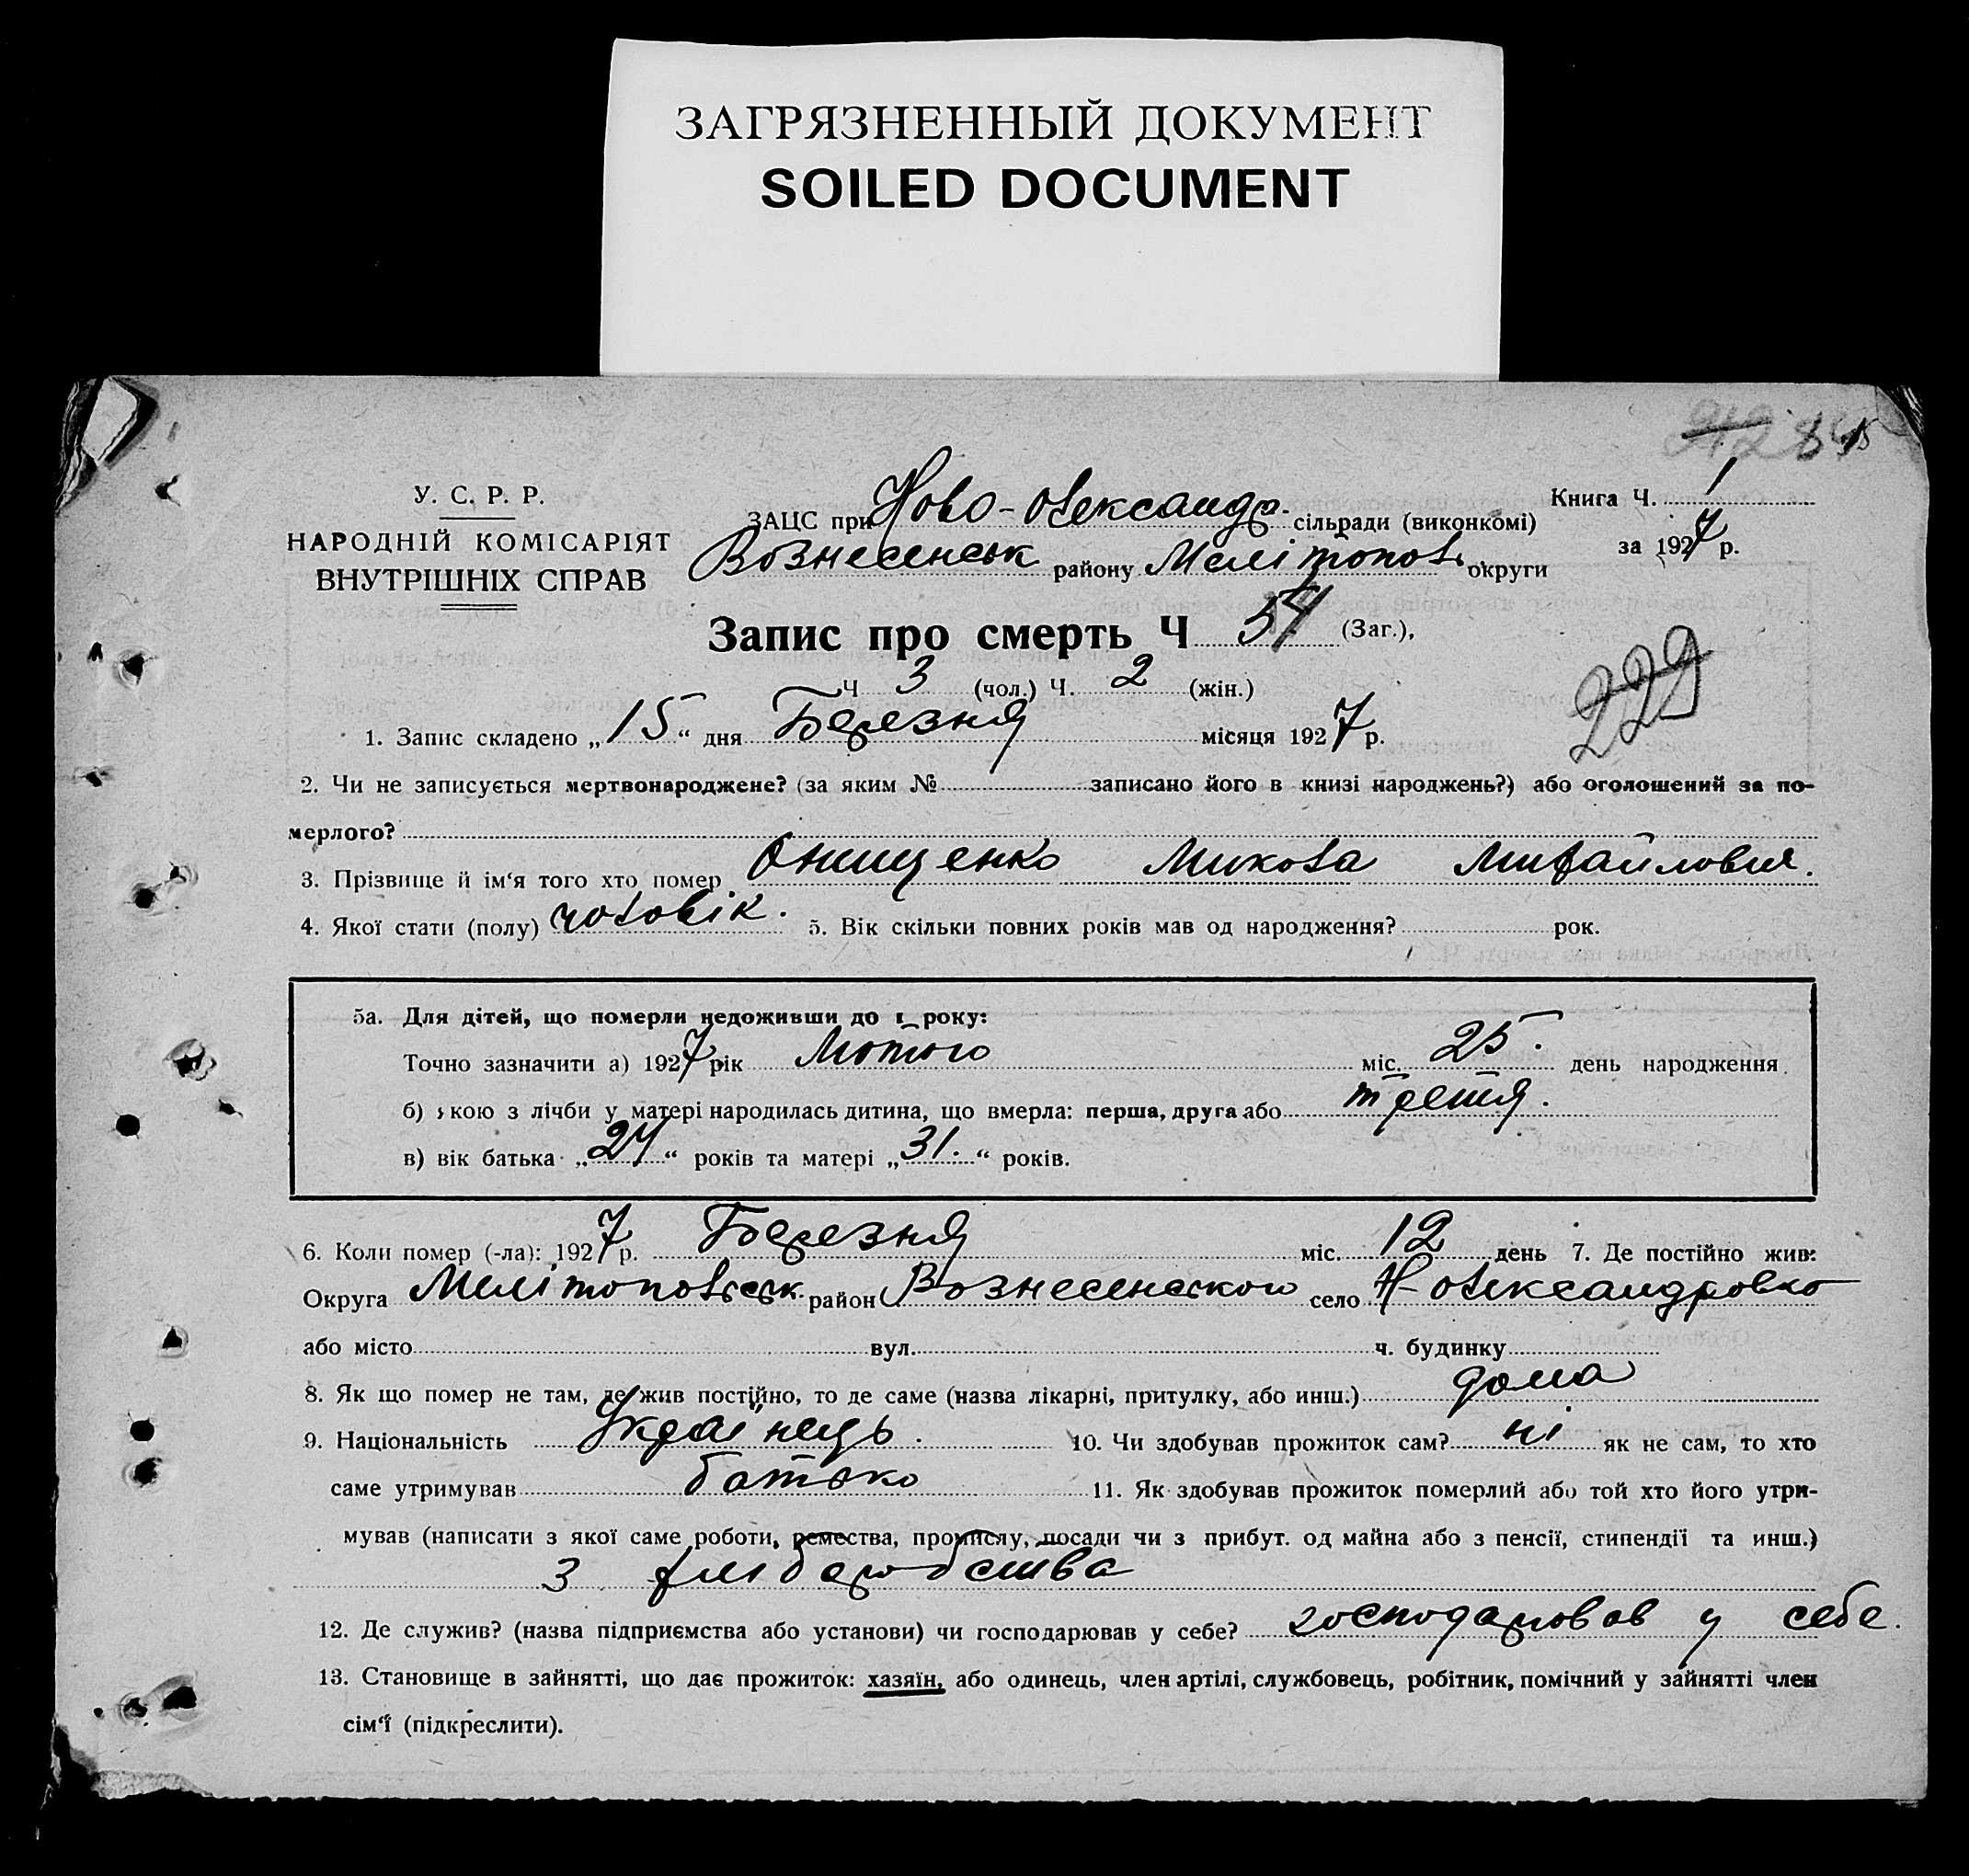 ЗАГРЯЗНЕННЫЙ ДОКУМЕНТ
SOILED DOCUMENT
У. С. Р. Р.
НАРОДНІЙ КОМІСАРІЯТ
ВНУТРІШНІХ СПРАВ
ЗАЦС при Ново-Олександр. сільради (виконкомі)
Вознесенськ району Мелітопол. округи
Книга Ч. 1
за 1927 р.
Запис про смерть Ч (Заг.),
Ч 3 (чол.) Ч. 2 (жін.)
229
1. Запис складено „15“ дня Березня місяця 1927 р.
2. Чи не записується мертвонароджене? (за яким № записано його в книзі народжень?) або оголошений за по-
мерлого?
3. Прізвище й ім‘я того хто помер Онищенко Микола Михайлович.
4. Якої стати (полу) чоловік. 5. Вік скільки повних років мав од народження? рок.
5а. Для дітей, що померли недоживши до 1 року:
Точно зазначити а) 1927 рік Лютого міс. 25. день народження
б) якою з лічби у матері народилась дитина, що вмерла: перша, друга або третя.
в) вік батька „24“ років та матері „31.“ років.
6. Коли помер (-ла): 1927 р. Березня міс. 12 день 7. Де постійно жив:
Округа Мелітопольськ. район Вознесенського село Н-Олександровко
або місто вул. ч. будинку
8. Як що помер не там, де жив постійно, то де саме (назва лікарні, притулку, або инш.) дома
9. Національність Українець. 10. Чи здобував прожиток сам? ні як не сам, то хто
саме утримував батько 11. Як здобував прожиток померлий або той хто його утри-
мував (написати з якої саме роботи, ремества, промислу, посади чи з прибут. од майна або з пенсії, стипендії та инш.)
з хліборобства
12. Де служив? (назва підприємства або установи) чи господарював у себе? господарював у себе.
13. Становище в зайнятті, що дає прожиток: хазяїн, або одинець, член артілі, службовець, робітник, помічний у зайнятті член
сім‘ї (підкреслити).